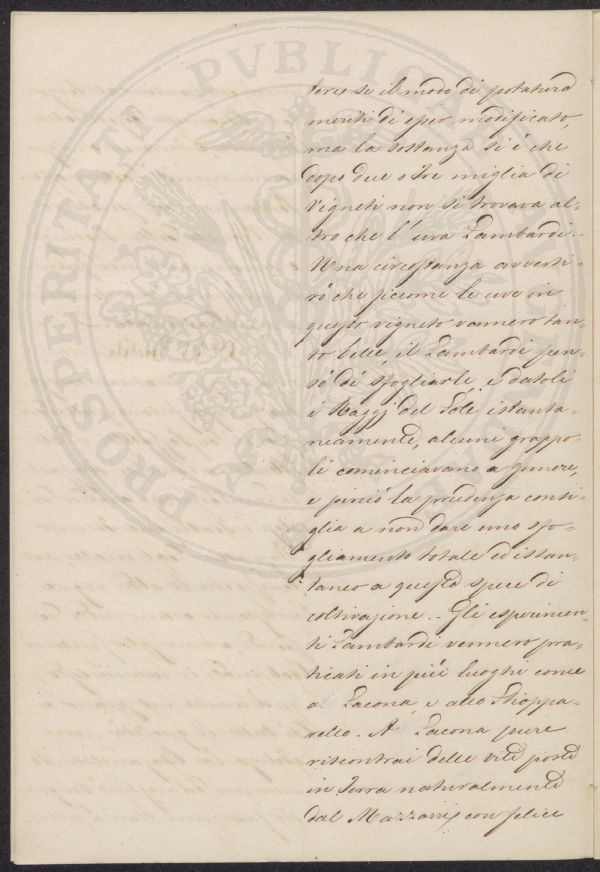 PROSPERITATI PVBLICAE
tere se il modo di potatura
meriti di esser modificato,
ma la sostanza si è che
dopo due o Tre miglia di
Vigneti non si trovava al=
tro che l'uva Lambardi.
Una circostanza avverti=
rò che siccome le uve in
questo vigneto vennero tan=
to belle, il Lambardi pen=
sò di sfogliarle, e datoli
i Raggj del Sole istanta=
neamente, alcuni grappo=
li cominciavano a
e perciò la prudenza consi=
glia a non dare uno sfo=
gliamento totale ed istan=
taneo a questa spece di
coltivazione.. Gli esperimen=
ti Lambardi vennero pra=
ticati in più luoghi come
a Lacona, e allo Schioppa=
rello. A Lacona pure
riscontrai delle viti poste
in Terra naturalmente
dal con felice